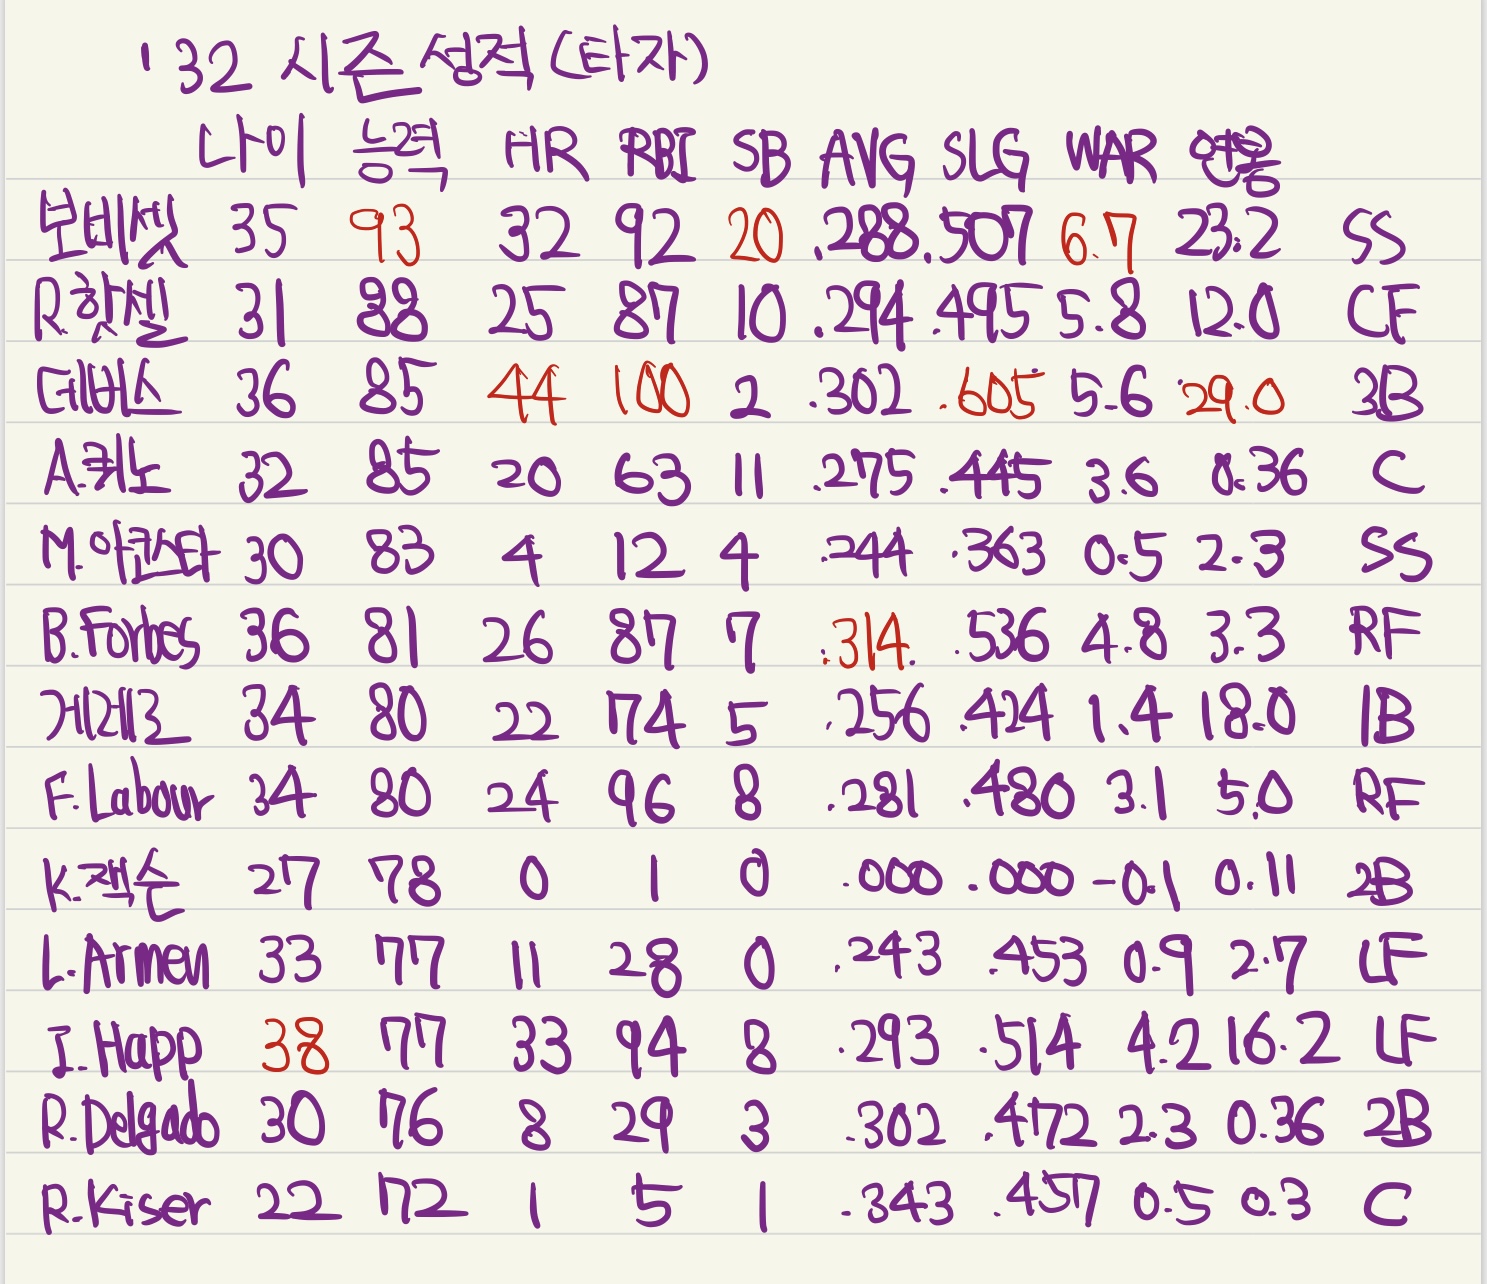 '32 시즌 성적 (타자)
나이 능력 HR RBI SB AVG SLG WAR 연봉
보비쳇 35 93 32 92 20 .288 .507 6.7 23.2 SS
R.핫셀 31 88 25 87 10 .294 .495 5.8 12.0 CF
데버스 36 85 44 100 2 .302 .605 5.6 29.0 3B
A.퀴노 32 85 20 63 11 .275 .445 3.6 0.36 C
M.아코스타 30 83 4 12 4 .244 .363 0.5 2.3 SS
B.Forbes 36 81 26 87 7 .314 .536 4.8 3.3 RF
게레로 34 80 22 74 5 .256 .424 1.4 18.0 1B
F.Labour 34 80 24 96 8 .281 .480 3.1 5.0 RF
K.잭슨 27 78 0 1 0 .000 .000 -0.1 0.11 2B
L.Armen 33 77 11 28 0 .243 .453 0.9 2.7 LF
I.Happ 38 77 33 94 8 .293 .514 4.2 16.2 LF
R.Delgado 30 76 8 29 3 .302 .472 2.3 0.36 2B
R.Kiser 22 72 1 5 1 .343 .457 0.5 0.3 C